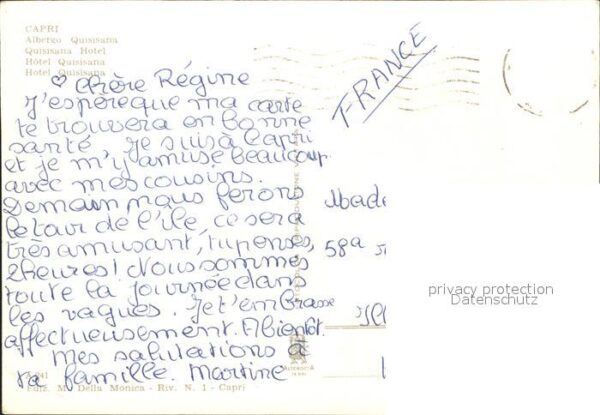 CAPRI
Albergo Quisisana
Quisisana Hotel
Hôtel Quisisana
Hotel Quisisana
FRANCE
♡ Chère Régine
J'espère que ma carte
te trouvera en bonne
santé. Je suis à Capri
et je m'y amuse beaucoup
avec mes cousins.
Demain nous ferons
le tour de l'île, ce sera
très amusant, tu penses,
2 heures! Nous sommes
toute la journée dans
les vagues. Je t'embrasse
affectueusement. A bientôt.
Mes salutations à
ta famille. Martine
Made
58a
privacy protection
Datenschutz
Ediz. M. Della Monica - Riv. N. 1 - Capri